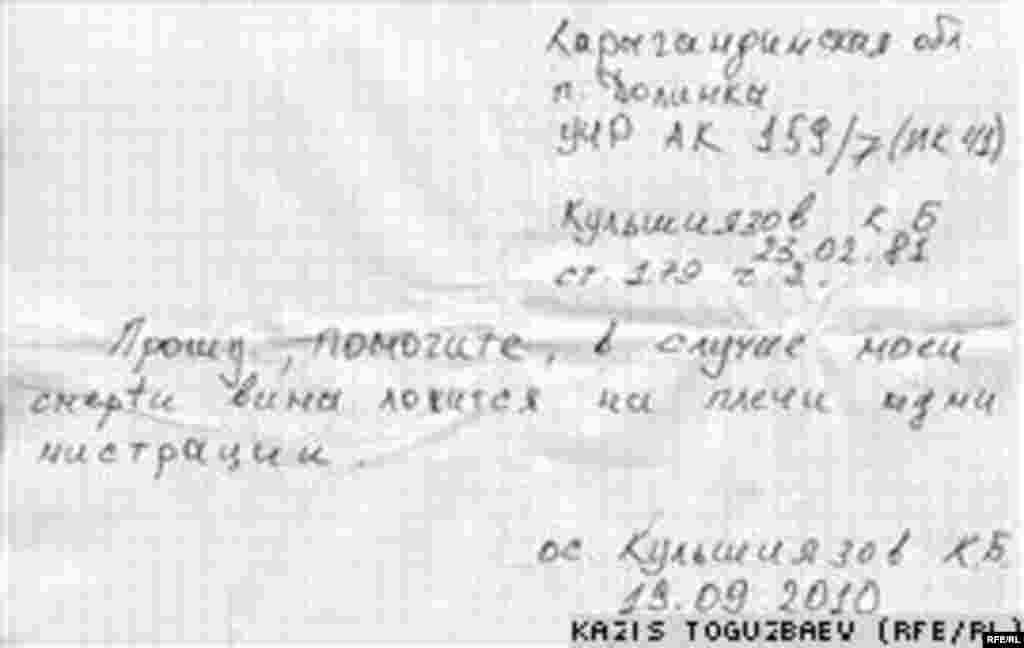 Карагандинская обл.
п. Долинка
УЧР АК 159/7 (ИК 41)
Кульшиязов К Б
23.02.81
ст. 179 ч 3.
Прошу, помогите, в случае моей
смерти вина ложится на плечи адми
нистрации.
ос Кульшиязов К Б
19.09 2010
KAZIS TOGUZBAEV (RFE/RL)
RFE/RL